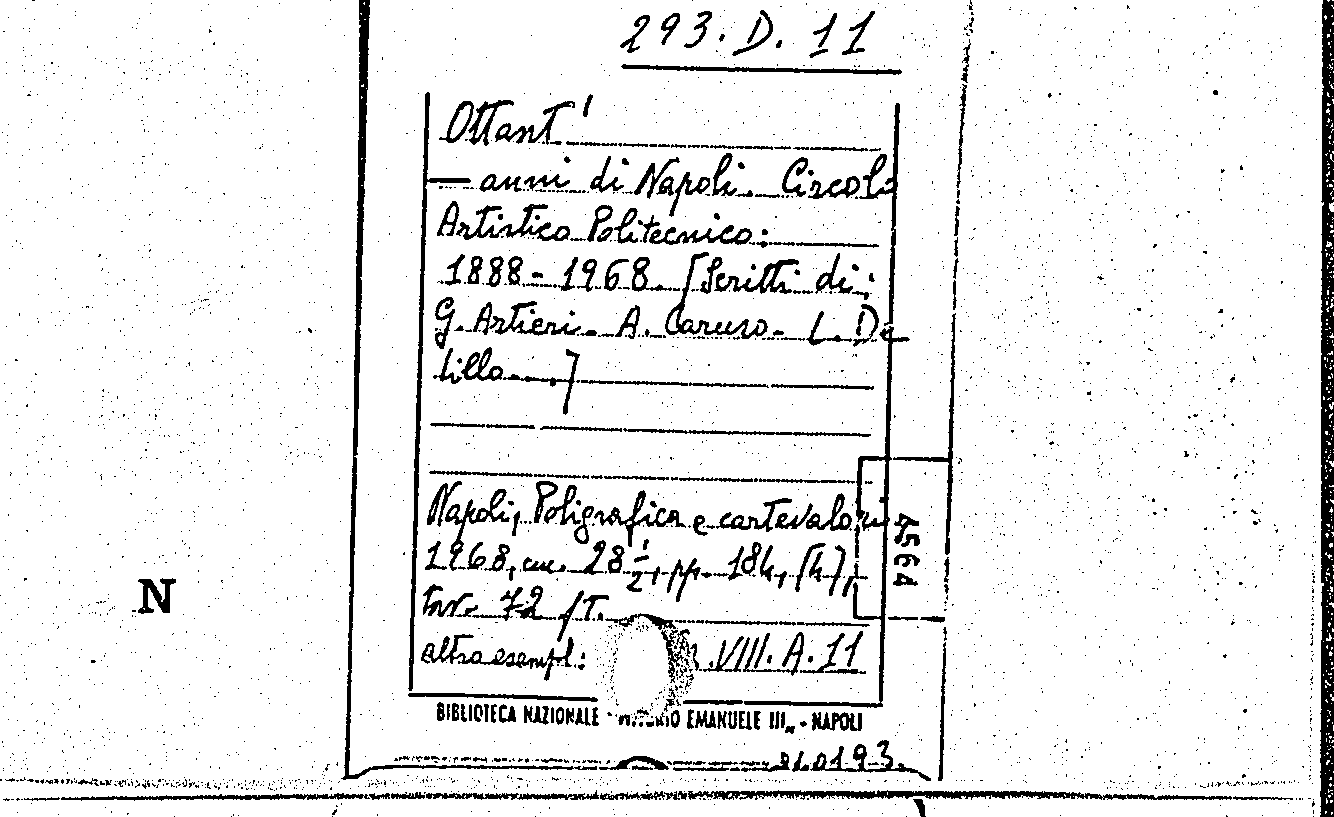 293. D. 11
Ottant'
— anni di Napoli. Circolo
Artistico Politecnico:
1888-1968. [Scritti di:
G. Artieri - A. Caruso - L. De
Lillo ...]
Napoli, Poligrafica e cartevalori
1968, cm. 28 1/2, pp. 184, [4],
tav. 72 f.T.
altro esempl: VIII. A. 11
4564
N
BIBLIOTECA NAZIONALE EMANUELE III„ - NAPOLI